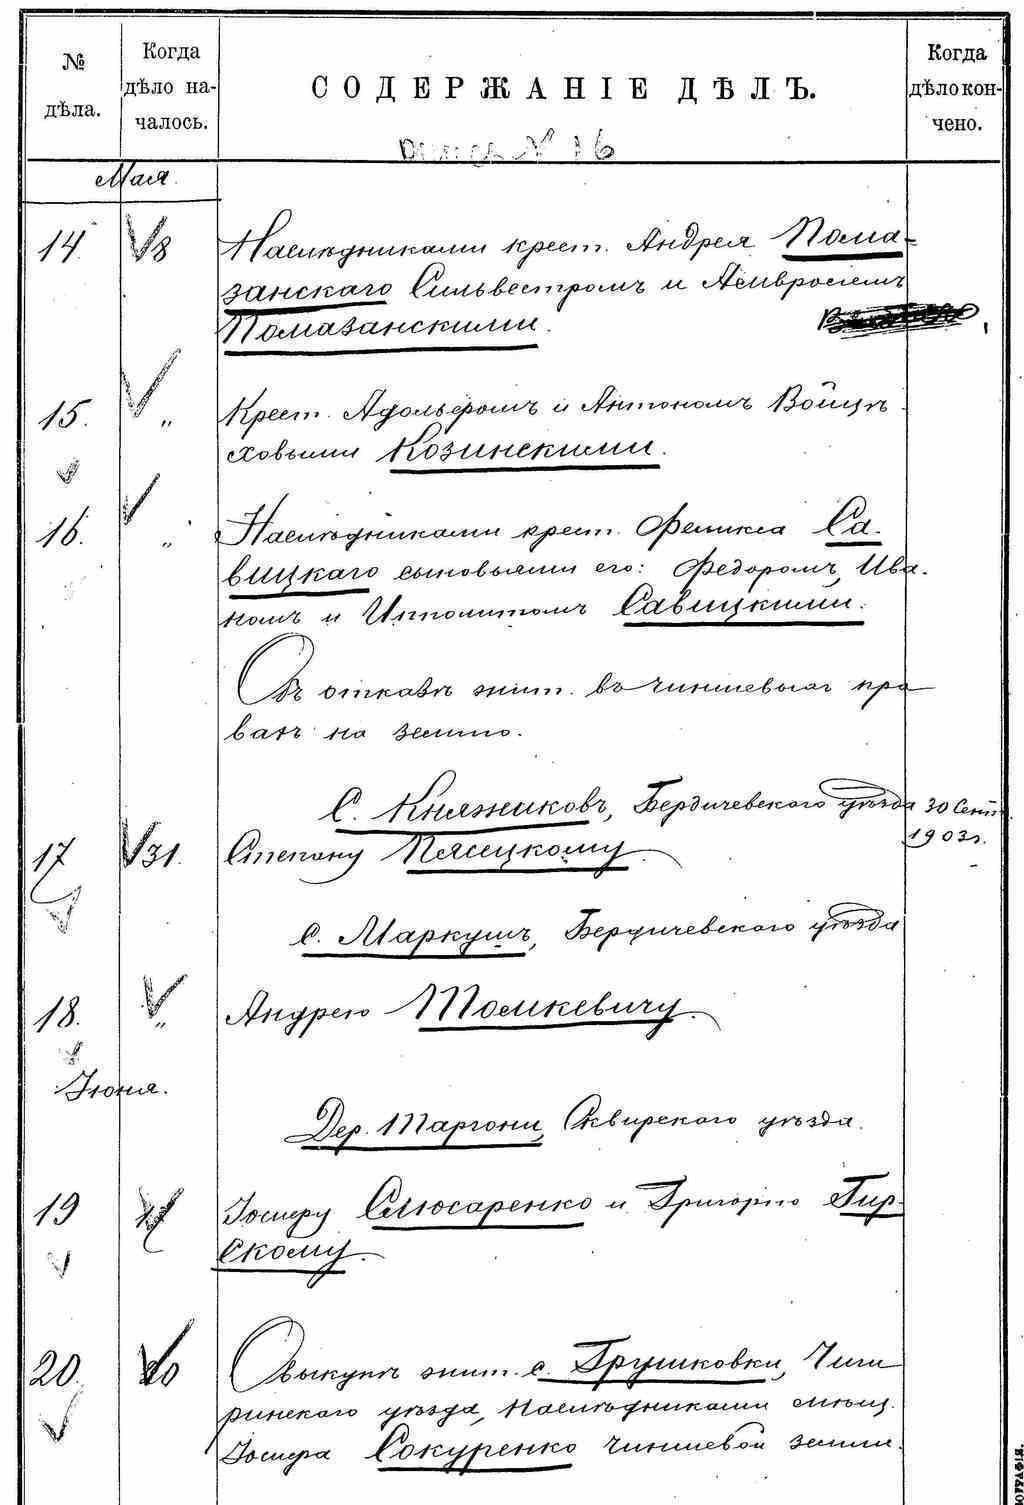 № дѣла.
Когда дѣло на-
чалось.
СОДЕРЖАНІЕ ДѢЛЪ.
Когда дѣло кон-
чено.
16
Мая.
14. 8 Наслѣдниками крест. Андрея Пома-
занскаго Сильвестромъ и Амвросіемъ
Помазанскими.
15. „ Крест. Адольфомъ и Антономъ Войцѣ
ховыми Козинскими.
16. „ Наслѣдниками крест. Феликса Са-
вицкаго сыновьями его: Федоромъ, Ива-
номъ и Ипполитомъ Савицкими.
Объ отказѣ жит. въ чиншевыхъ пра
вахъ на землю.
С. Княжиковъ, Бердичевскаго уѣзда 30 Сент
1903г.
17 31. Степану Пясецкому.
С. Маркушъ, Бердичевскаго уѣзда
18. „ Андрею Томкевичу.
Іюня.
Дер. Таргони, Сквирскаго уѣзда.
19 Іосифу Слюсаренко и Григорію Гир-
скому.
20. 20 О выкупѣ жит. с. Грушковки, Чиги
ринскаго уѣзда, наслѣдниками мѣщ.
Іосифа Сокуренко чиншевой земли.